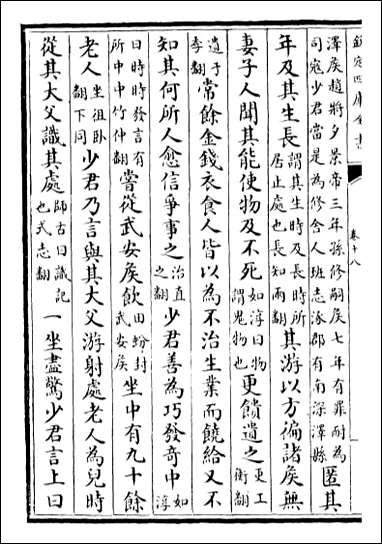 欽定四庫全書
卷十八
澤侯趙將夕景帝三年孫修嗣侯七年有罪耐為司寇少君當是為修舍人班志涿郡有南深澤縣匿其
年及其生長謂其生時及長時所居止處也長知兩翻其游以方徧諸侯無
妻子人聞其能使物及不死如淳曰物謂鬼物也更饋遺之更工衡翻
遺于季翻常餘金錢衣食人皆以為不治生業而饒給又不
知其何所人愈信爭事之治直之翻少君善為巧發奇中如淳
曰時時發言有所中中竹仲翻嘗從武安侯飲田蚡封武安侯坐中有九十餘
老人坐徂卧翻下同少君乃言與其大父游射處老人為兒時
從其大父識其處師古曰識記也式志翻一坐盡驚少君言上曰